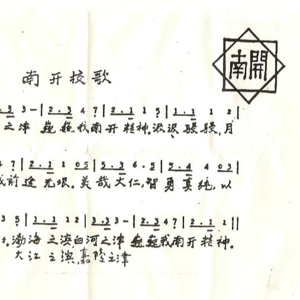 南開
南开校歌
3-|2.3 4 7|2.1 1 5|1.1 1 2|
之津 巍巍我南开精神,汲汲骎骎,月
7|2.1 1 05|5.3 6.5|5.4 4 03|
前途无垠,美哉大仁,智勇真纯,以
3 5|1.2 2 12|3.3 3-|2.3 4 7|2.1 1||
渤海之滨,白河之津 巍巍我南开精神。
大江之滨,嘉陵之津